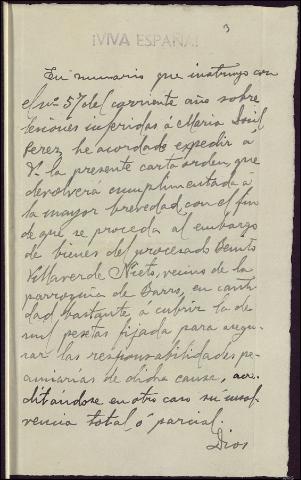 3
¡VIVA ESPAÑA!
En sumario que instruyo con
el nº 57 del corriente año sobre
lesiones inferidas á Maria
Perez, he acordado expedir a
V. la presente carta orden, que
devolverá cumplimentada á
la mayor brevedad, con el fin
de que se proceda al embargo
de bienes del procesado Benito
Villaverde Nieto, vecino de la
parroquia de Barro, en canti-
dad bastante, a cubrir la de
mil pesetas fijada para asegu-
rar las responsabilidades pe-
cuniarias de dicha causa, acre
ditandose en otro caso su insol
vencia total ó parcial.
Dios